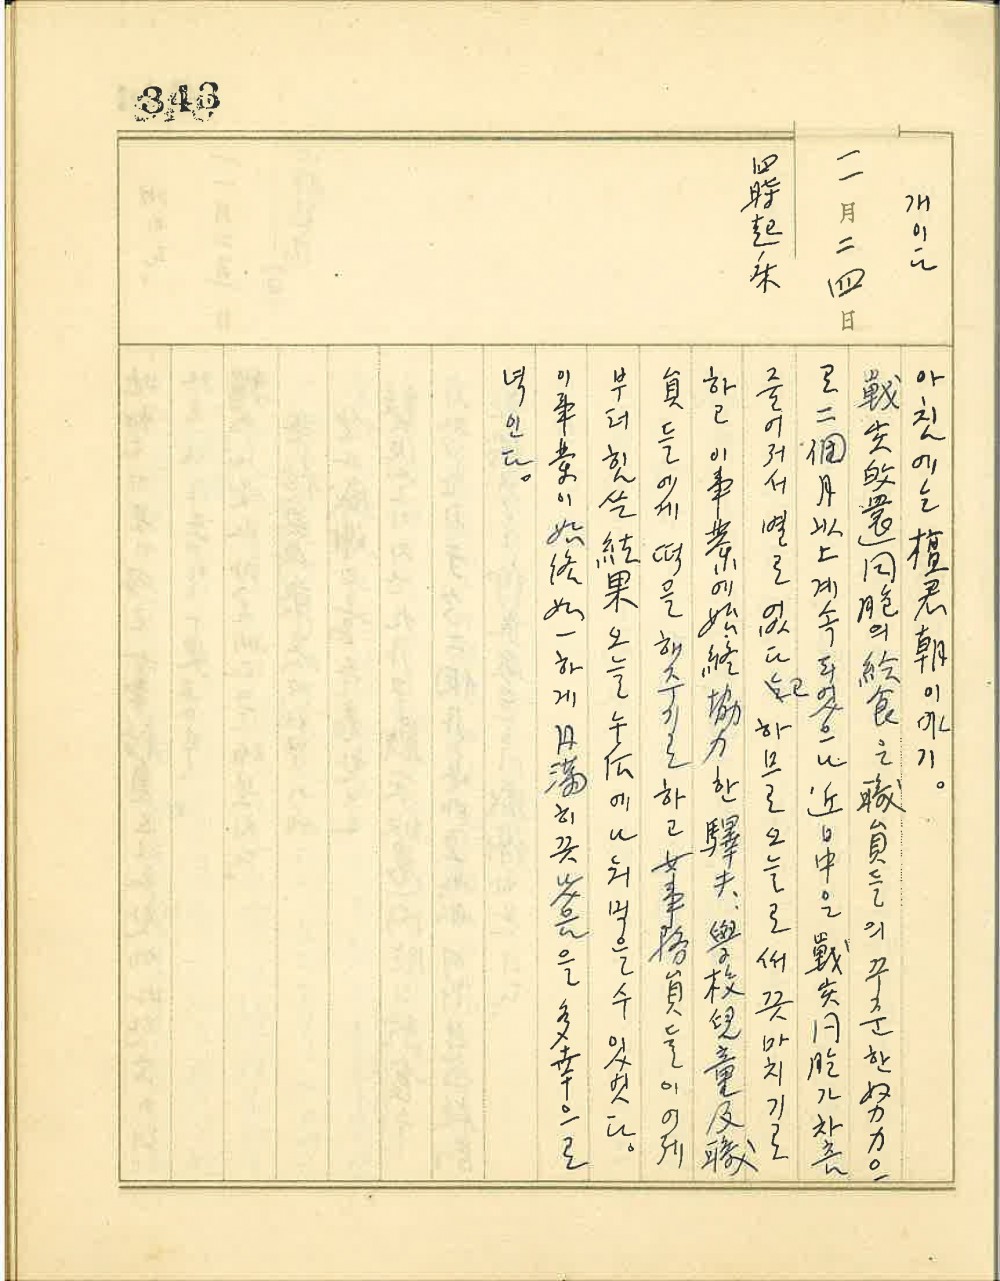 343
개이다
一一月二四日
四時起床
아침에는 檀君朝이야기。
戰災歸還同胞의 給食은 職員들의 꾸준한 努力으
로 二個月以上 계속되였으나 近日中은 戰災同胞가 차츰
줄어저서 별로 없다고 하므로 오늘로써 끗마치기로
하고 이事業에 始終 協力한 驛夫、學校兒童及職
員들에게 떡을 해주기로 하고 女事務員들이 어제
부터 힘쓴 結果 오늘 午后에 나희먹을 수 있었다。
이事業이 始終如一하게 円滿히 끗낫음을 多幸으로
녁인다。